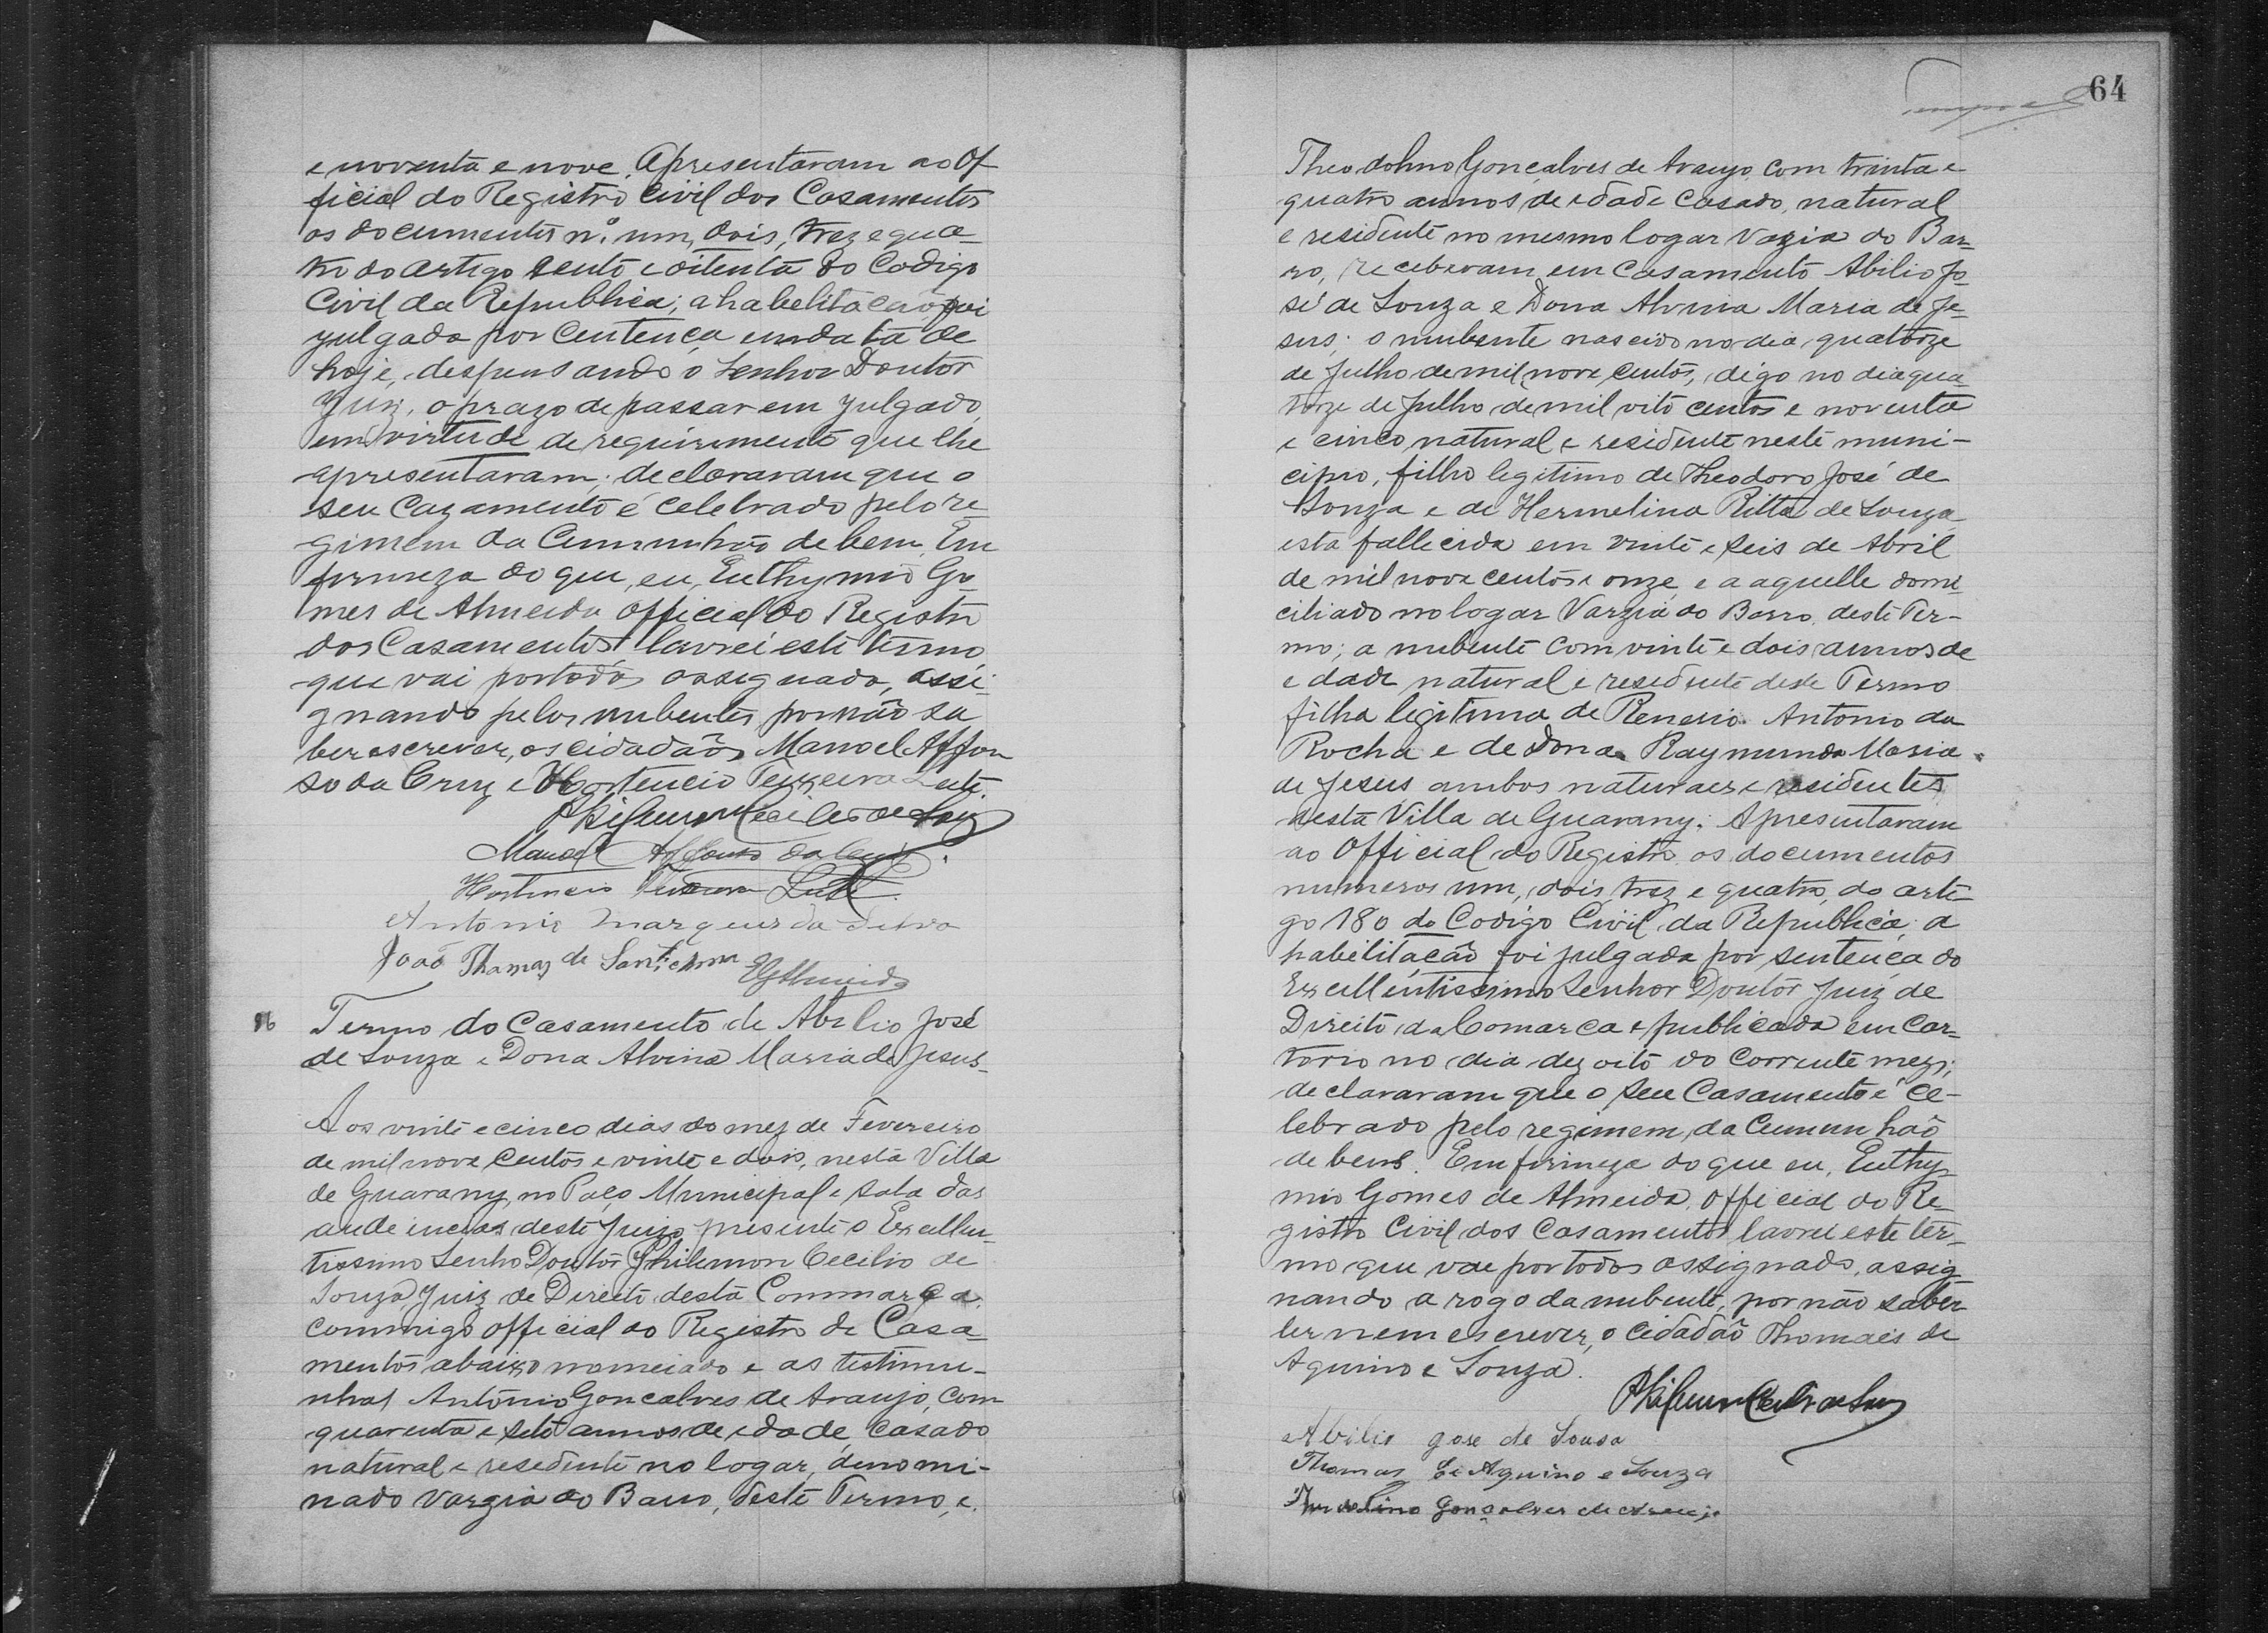 e noventa e nove. Apresentaram ao Of
ficial do Registro Civil dos Casamentos
os documentos nº. um, dois, trez e qua-
tro do artigo cento e oitenta do Codigo
Civil da Republica; a habelitação foi
julgada por centença em data de
hoje, despensando o Senhor Doutor
Juiz, o prazo de passar em julgado,
em virtude de requirimento que lhe
apresentaram; declararam que o
seu Cazamento é celebrado pelo re-
gimem da Cummunhão de bem. Em
firmeza do que, eu, Euthymio Go
mes de Almeida Official do Registro
dos Casamentos lavrei este termo,
que vai por todos assignado, assi-
gnando pelos nubentes por não sa
ber escrever, os cidadãos Manoel Affon
so da Cruz e Hortencio Teixeira Leite.
Philemon Cecilio de Souza
Manoel Affonso da Cruz.
Hortencio Teixeira Leite.
Antonio Marques da Silva
João Thomaz de Sant'Anna EGAlmeida
96 Termo do Casamento de Abilio José
de Souza e Dona Alvina Maria de Jesus-
Aos vinte e cinco dias do mez de Fevereiro
de mil nove centos e vinte e dois, nesta Villa
de Guarany, no Paço Municipal e sala das
audiencias deste Juizo, presente o Excellen-
tissimo Senho Doutor Philemon Cecilio de
Souza, Juiz de Direito desta Commarca,
commigo official do Registro de Casa-
mentos abaixo nomeiado e as testimu-
nhas Antônio Gonçalves de Araujo, com
quarenta e sete annos de edade, casado
natural e resedente no logar, denomi-
nado Vargia do Barro, deste Termo, e.
64
Theodolino Gonçalves de Araujo, com trinta e
quatro annos de edade casado, natural
e residente no mesmo logar Vazia do Bar-
ro, receberam em casamento Abilio Jo-
sé de Souza e Dona Alvina Maria de Je-
sus; o nubente nascido no dia quatorze
de Julho de mil nove centos, digo no dia qua-
torze de Julho de mil oito centos e noventa
e cinco natural e residente neste muni-
cipio, filho legitimo de Theodoro José de
Souza e de Hermelina Ritta de Souza
esta fallecida em vinte e seis de Abril
de mil nove centos e onze, e a aquelle domi-
ciliado no logar Vargia do Barro, deste Ter-
mo; a nubente com vinte e dois annos de
edade natural e resedente deste Termo
filha legitima de Renerio Antonio da
Rocha e de Dona Raymunda Maria
de Jesus ambos naturaes e residentes
nesta Villa de Guarany; Apresentaram
ao Official do Registro os documentos
numeros um, dois, trez e quatro, do arti-
go 180 do Codigo Civil da Republica; a
habelitação foi julgada por sentença do
Excellentissimo Senhor Doutor Juiz de
Direito da Comarca e publicada em Car-
torio no dia dezoito do corrente mez;
declararam que o seu Casamento é ce-
lebrado pelo regimem da Cumunhão
de bens. Em firmeza do que eu, Euthy-
mio Gomes de Almeida, Official do Re-
gistro Civil dos Casamentos lavrei este ter-
mo que vae por todos assignado, assig-
nando a rogo da nubente, por não saber
ler nem escrever, o cidadão Thomaés de
Aquino e Souza.
Philemon Cecilio de Souza
Abilio gose de Sousa
Thomaz de Aquino e Souza
Theodolino Gonçalves de Araujo